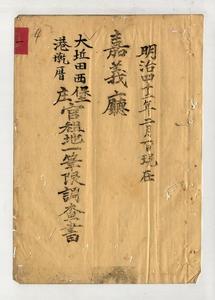 明治四十一年一月一日現在
嘉義廳
大坵田西堡
港墘厝
庄官租地一筆限調査書